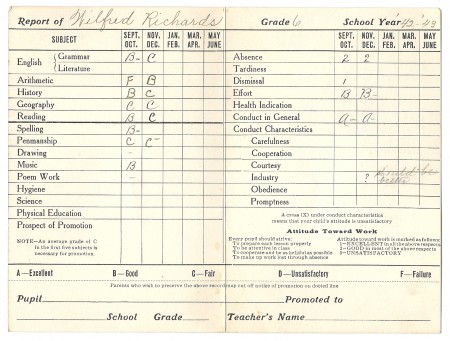 Report of Wilfred Richards Grade 6 School Year '42-'43
SUBJECT SEPT. OCT. NOV. DEC. JAN. FEB. MAR. APR. MAY JUNE SEPT. OCT. NOV. DEC. JAN. FEB. MAR. APR. MAY JUNE
English { Grammar B- C
Literature
Arithmetic F B
History B C
Geography C C
Reading B C
Spelling B-
Penmanship C C-
Drawing -
Music B
Poem Work - -
Hygiene
Science
Physical Education
Prospect of Promotion
NOTE—An average grade of C
in the first five subjects is
necessary for promotion.
Absence 2 2
Tardiness
Dismissal 1
Effort B B-
Health Indication
Conduct in General a- a
Conduct Characteristics
Carefulness
Cooperation
Courtesy
Industry ? should be better
Obedience
Promptness
A cross (X) under conduct characteristics
means that your child's attitude is unsatisfactory
Attitude Toward Work
Every pupil should strive:
To prepare each lesson properly
To be attentive in class
To cooperate and be as helpful as possible
To make up work lost through absence
Attitude toward work is marked as follows:
1—EXCELLENT in all the above respects
2—GOOD in most of the above respects
3—UNSATISFACTORY
A—Excellent B—Good C—Fair D—Unsatisfactory F—Failure
Parents who wish to preserve the above record may cut off notice of promotion on dotted line
Pupil Promoted to
School Grade Teacher's Name